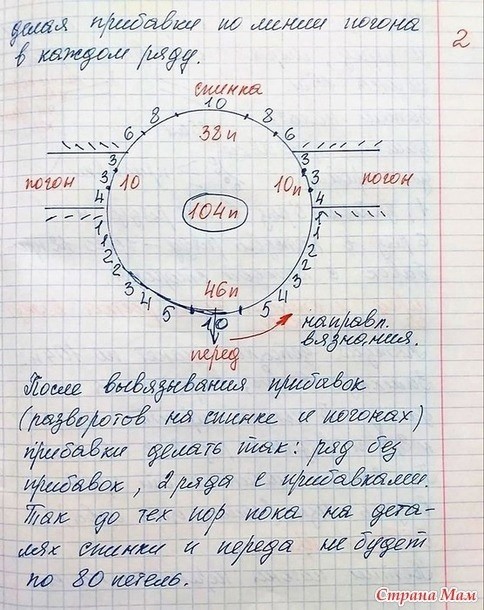 делая прибавки по линии погона
в каждом ряду.
2
спинка
10
6 8 8 6
32п
3 3
погон 3 10 10п 3 погон
4 4
104п
1 1
1 1
2 2
2 2
3 3
4 46п 4
5 5
10
перед
направл.
вязания.
После вывязывания прибавок
(разворотов на спинке и погонах)
прибавки делать так: ряд без
прибавок, 2 ряда с прибавками.
Так до тех пор пока на дета-
лях спинки и переда не будет
по 80 петель.
Страна Мам